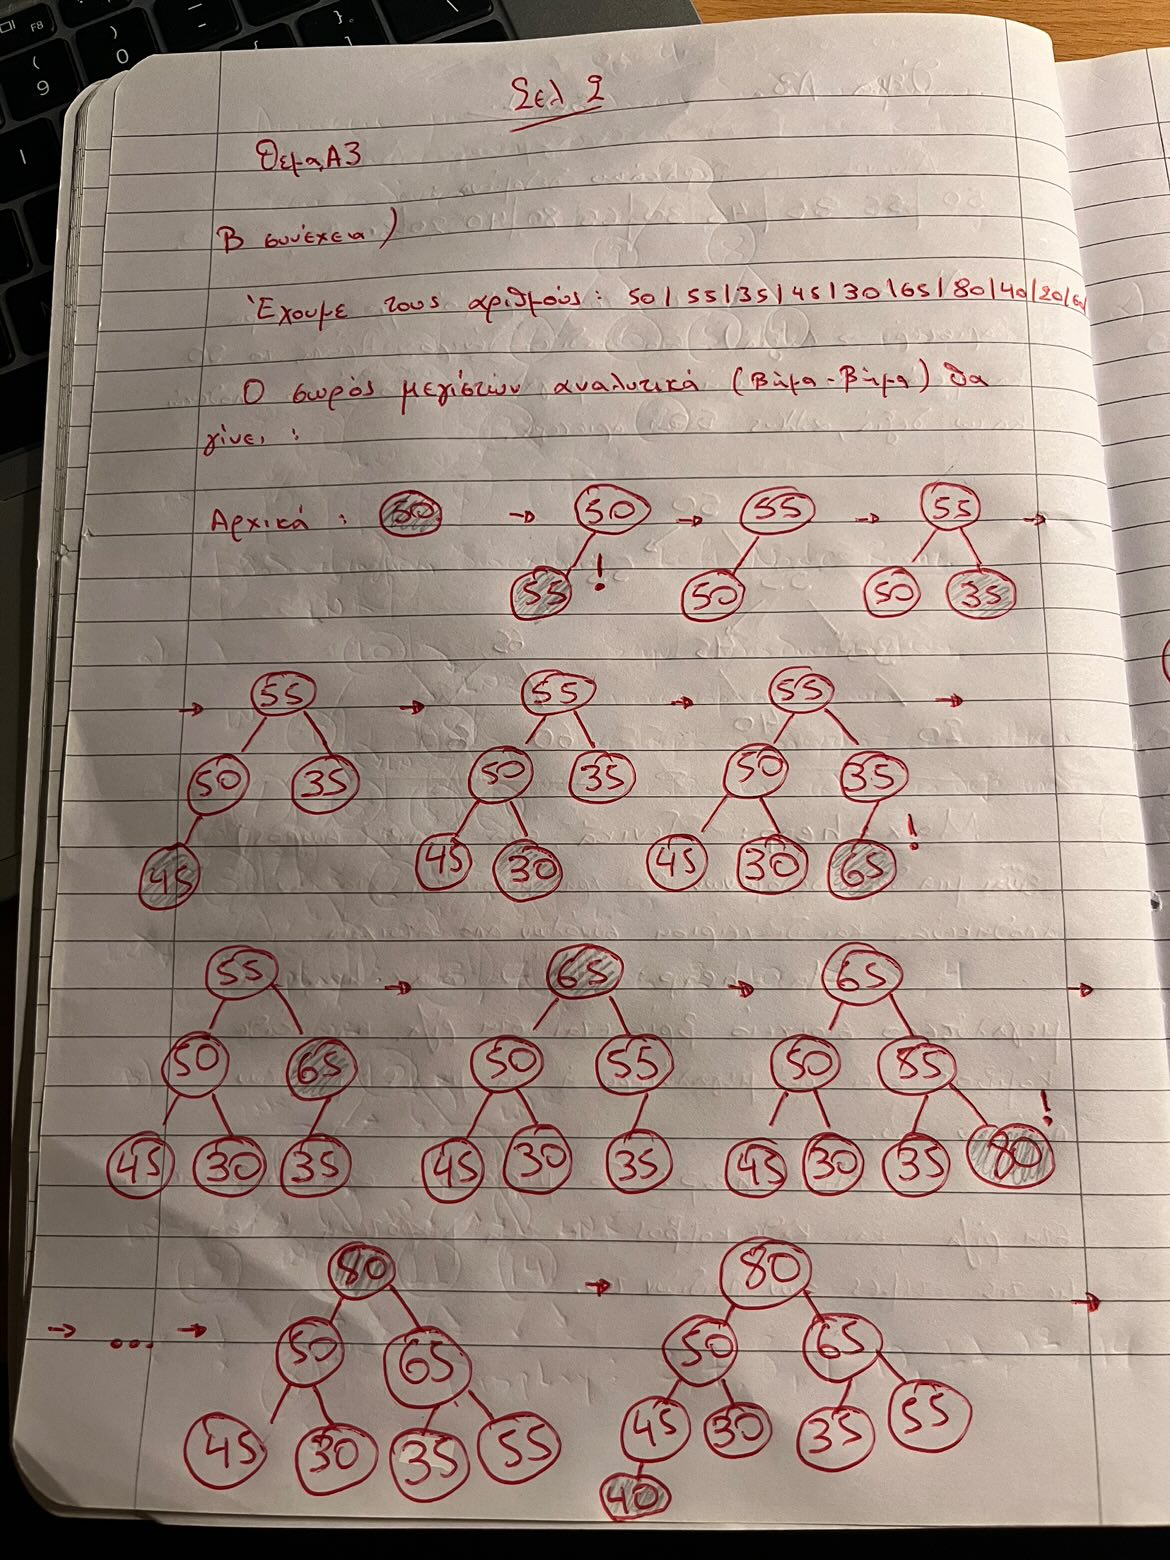 Σελ 2
Θεμα A3
B συνέχεια)
Έχουμε τους αριθμούς: 50/55/35/45/30/65/80/40/20/60
Ο σωρός μεγίστων αναλυτικά (Βήμα-Βήμα) θα
γίνει:
Αρχικά: 50 → 50 → 55 → 55 →
55 ! 50 50 35
→ 55 → 55 → 55 →
50 35 50 35 50 35
45 45 30 45 30 65 !
55 → 65 → 65 →
50 65 50 55 50 55
45 30 35 45 30 35 45 30 35 80 !
80 → 80 →
→ ... → 50 65 50 65
45 30 35 55 45 30 35 55
40